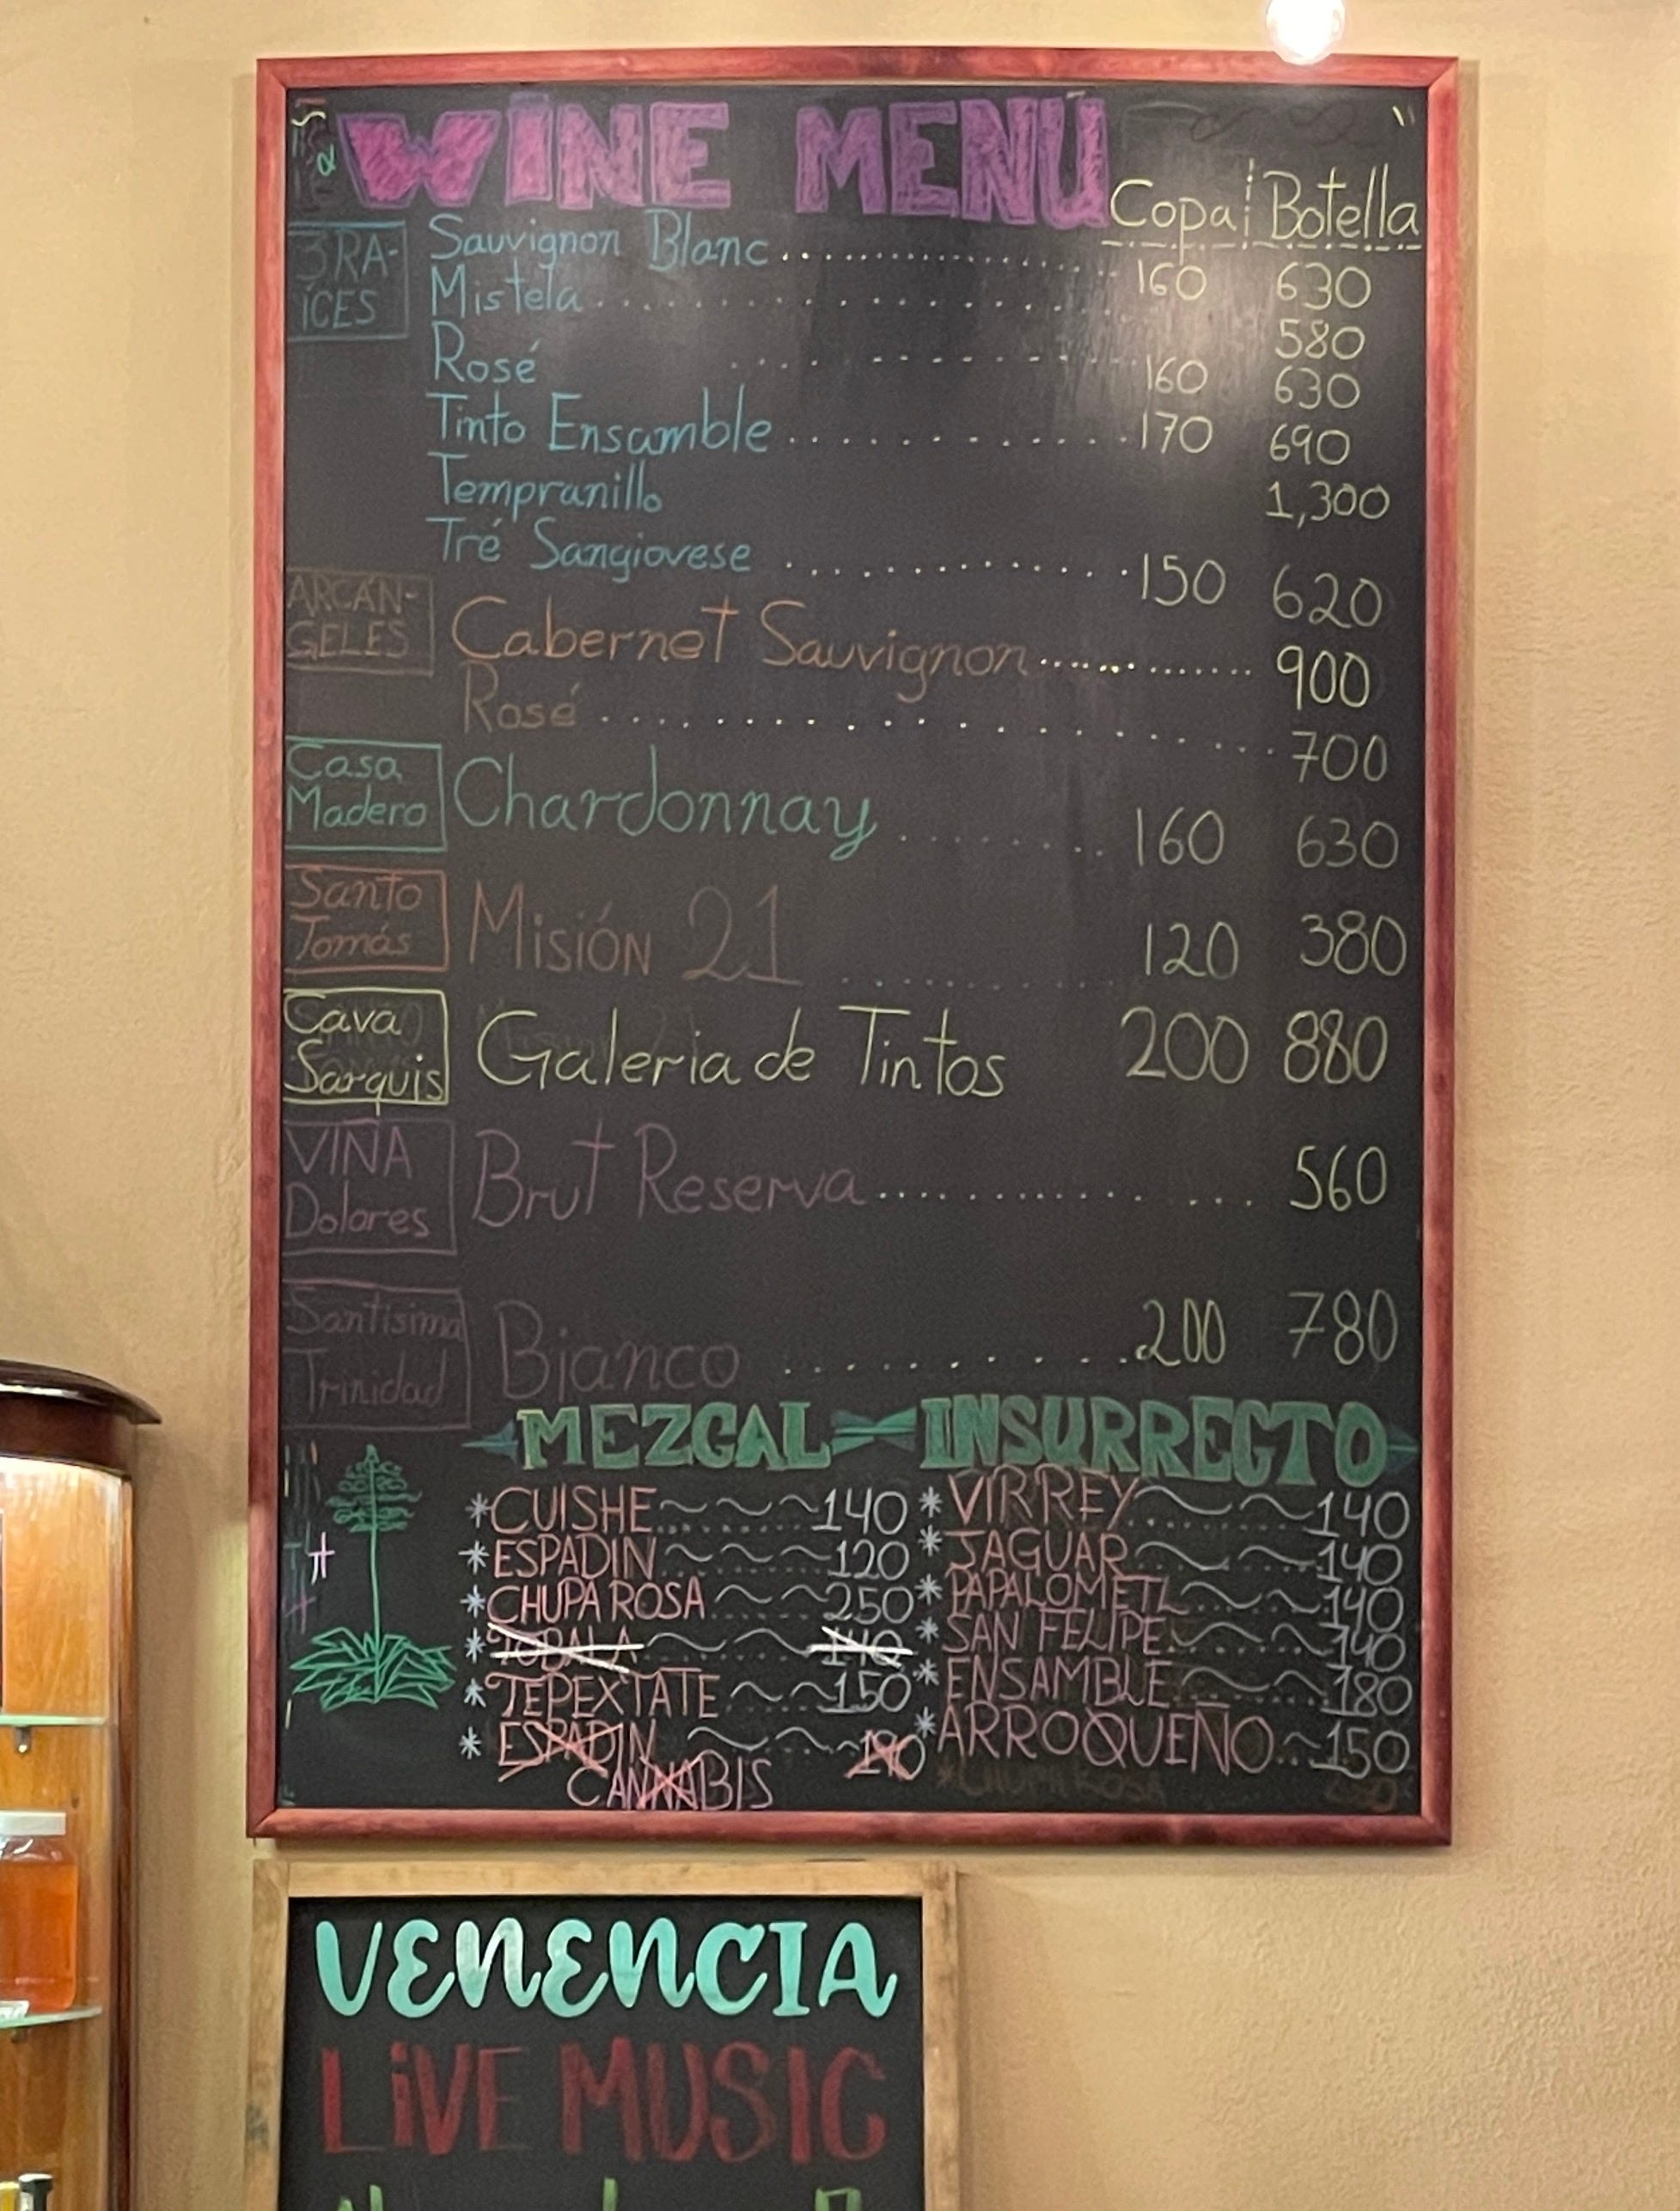 WINE MENU
Copa Botella
3RA-
ÍCES
Sauvignon Blanc 160 630
Mistela 580
Rosé 160 630
Tinto Ensamble 170 690
Tempranillo 1,300
Tré Sangiovese 150 620
ARCÁN-
GELES
Cabernet Sauvignon 900
Rosé 700
Casa
Madero
Chardonnay 160 630
Santo
Tomás
Misión 21 120 380
Cava
Sarquis
Galeria de Tintos 200 880
VIÑA
Dolores
Brut Reserva 560
Santisima
Trinidad
Bianco 200 780
MEZCAL INSURRECTO
*CUISHE 140
*ESPADIN 120
*CHUPA ROSA 250
*TOBALA 140
*TEPEXTATE 150
*ESPADIN 190
CANNABIS
*VIRREY 140
*JAGUAR 140
*PAPALOMETL 140
*SAN FELIPE 140
*ENSAMBLE 180
*ARROQUEÑO 150
VENENCIA
LiVE MUSIC